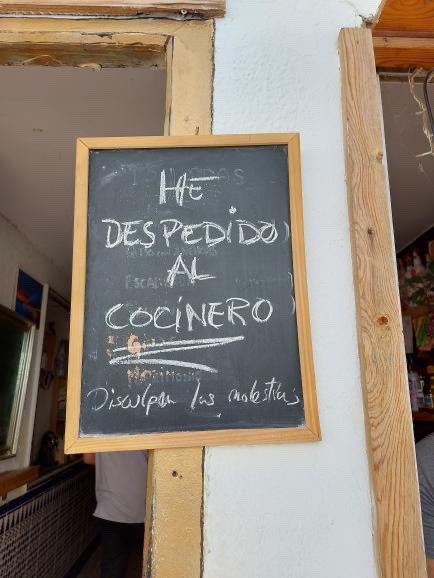 HE
DESPEDIDO
AL
COCINERO
Disculpen las molestias